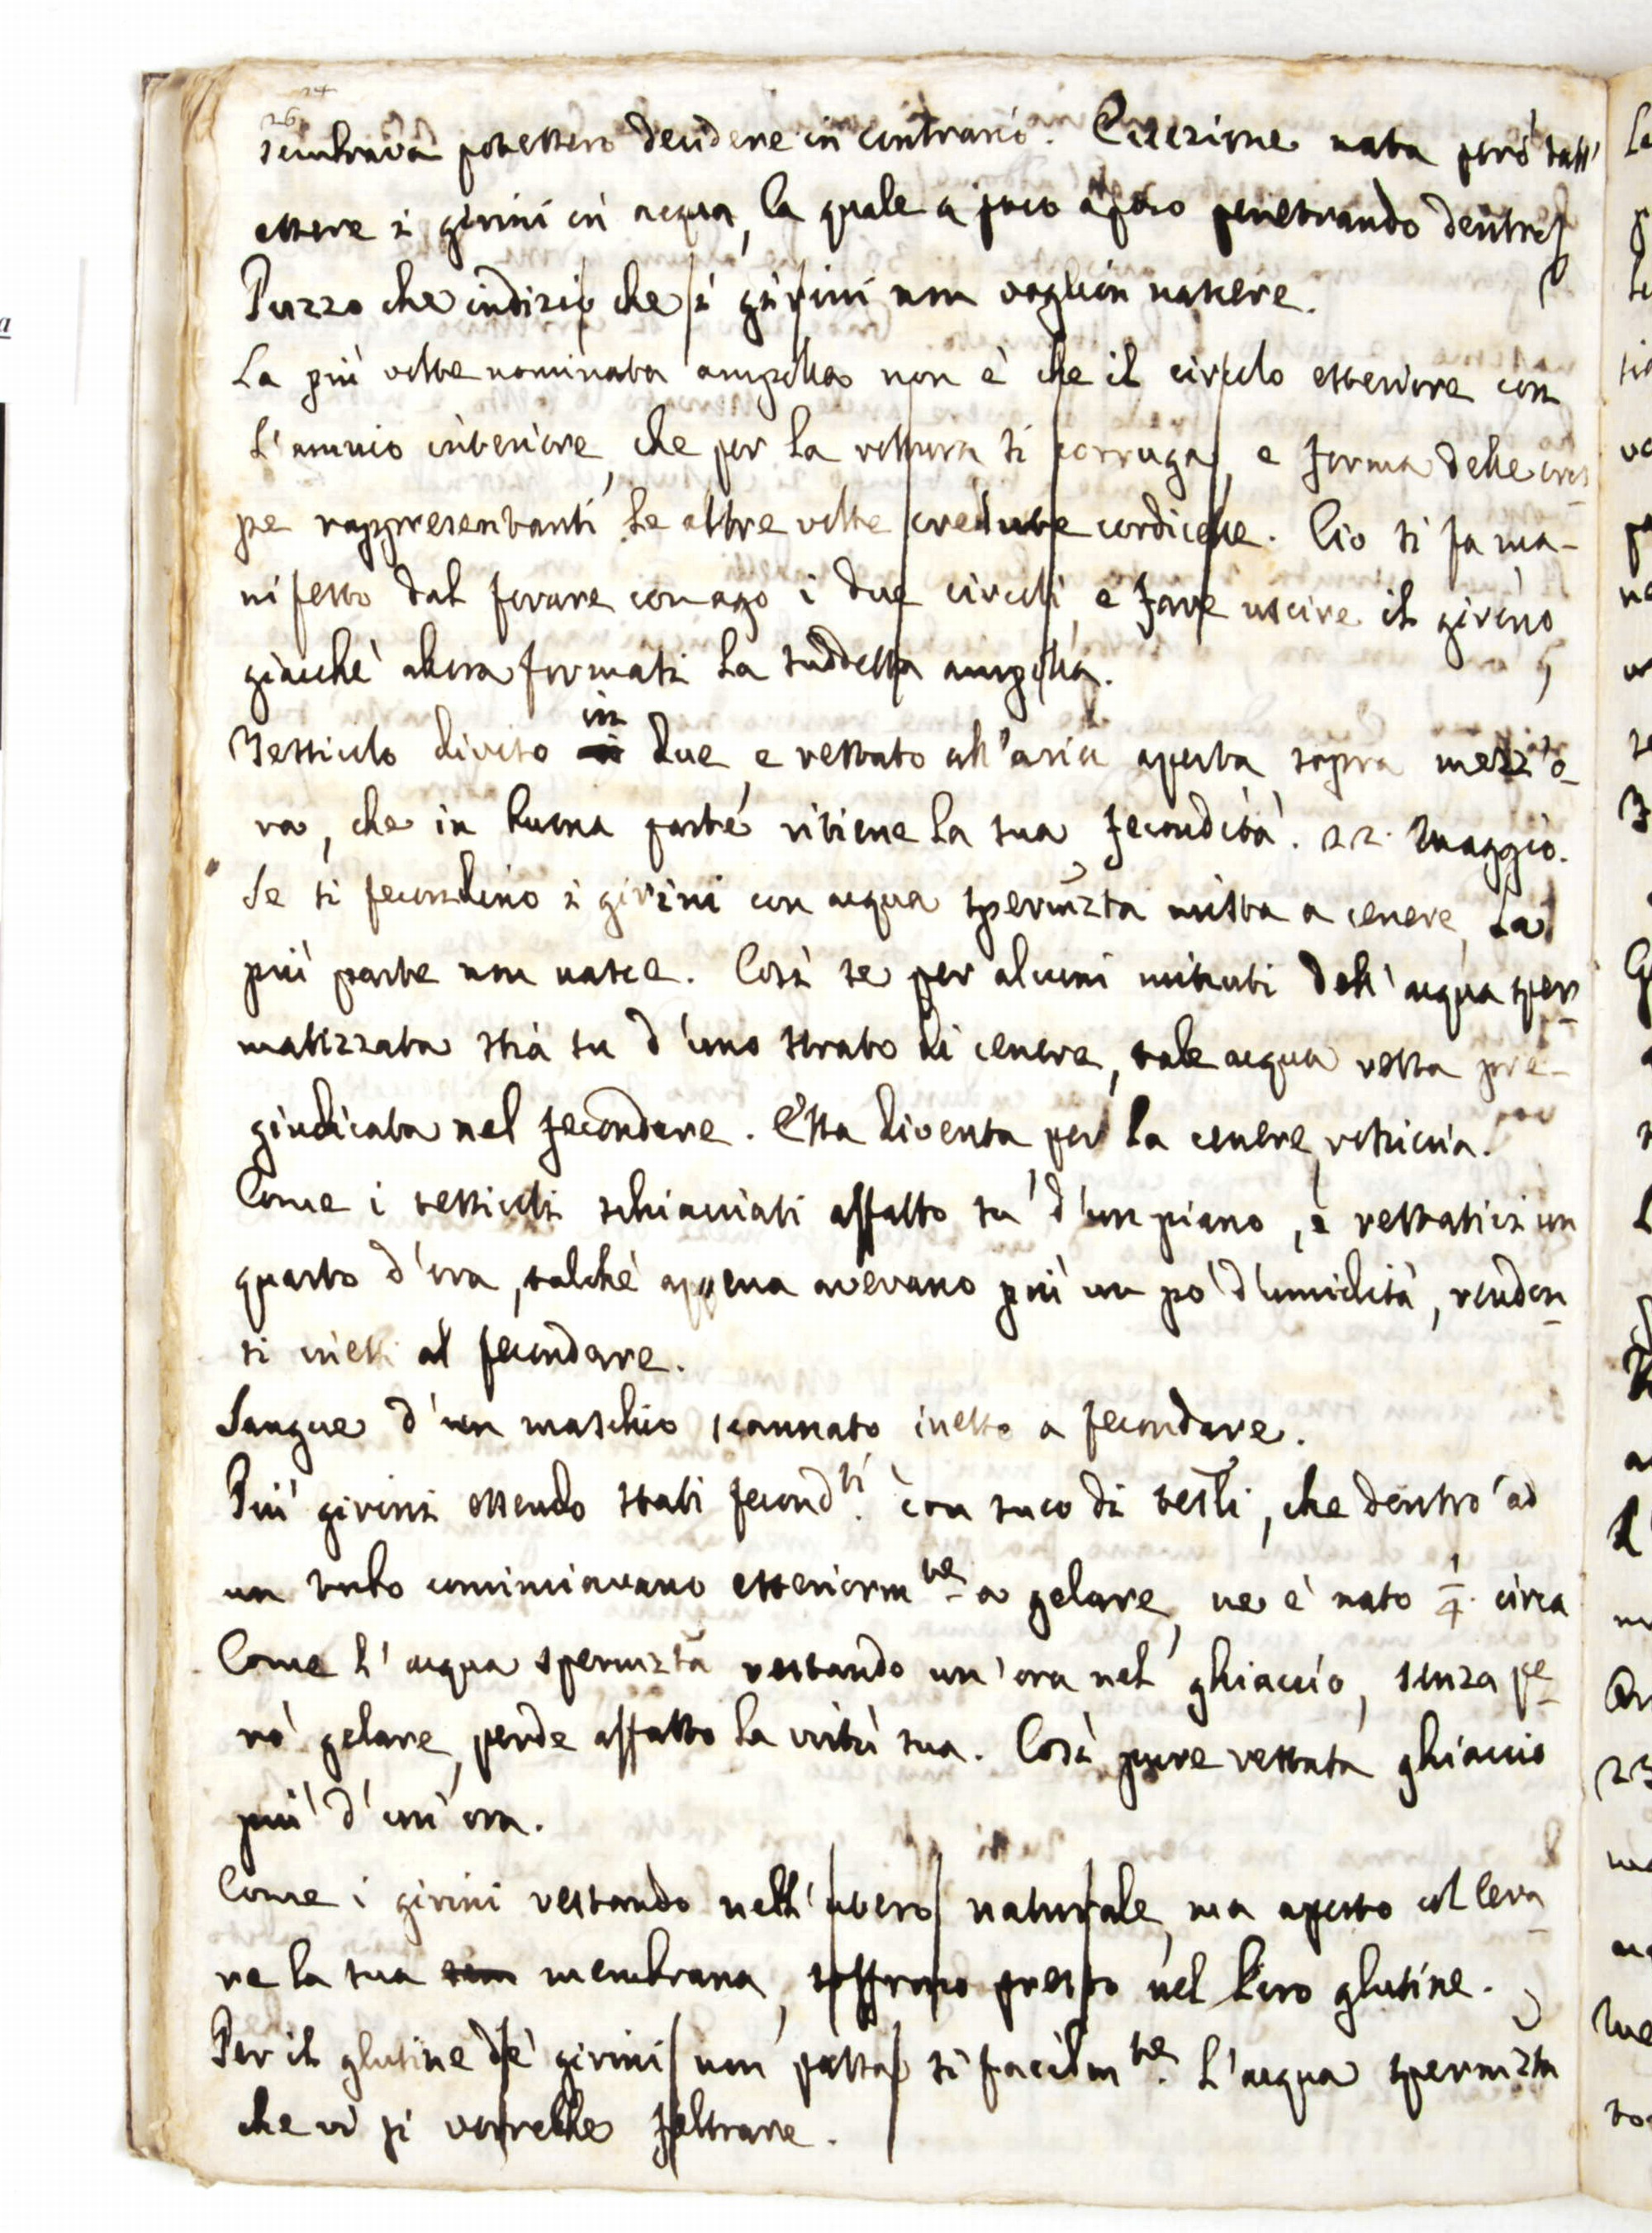 24
26
sembrava potessero decidere in contrario. Eccezione nata però dall'
essere i girini in acqua, la quale a poco a poco penetrando dentro
Puzzo che indizio che i girini non voglion nascere.
La più volte nominata ampolla non è che il circolo esteriore con
l'amnio interiore, che per la rottura si corruga, e forma delle cres-
pe rappresentanti le altre volte credute cordicelle. Ciò si fa ma-
nifesto dal forare con ago i due circoli, e fare uscire il girino
giacché allora formasi la suddetta ampolla.
Testicolo diviso in due, e restato all'aria aperta sopra mezz'o-
ra, che in buona parte ritiene la sua fecondità. 22. Maggio.
Se si fecondino i girini con acqua spermzta mista a cenere, la
più parte non nasce. Così se per alcuni minuti dell'acqua sper-
matizzata stia su d'uno strato di cenere, tale acqua resta pre-
giudicata nel fecondare. Essa diventa per la cenere
Come i testicoli schiacciati affatto su d'un piano, e restatici un
quarto d'ora, talché appena avevano più un po' d'umidità, rendon-
si inetti al fecondare.
Sangue d'un maschio scannato inetto a fecondare.
Più girini essendo stati fecondti. con suco di testli, che dentro ad
un tubo cominciavano esteriormte a gelare, ne è nato 1/4. circa
Come l'acqua spermzta restando un'ora nel ghiaccio, senza pe-
rò gelare, perde affatto la virtù sua. Così pure restata ghiaccio
più d'un'ora.
Come i girini restando nell'utero naturale, ma aperto col leva-
re la sua membrana, soffrono presto nel loro glutine.
Per il glutine de' girini non passa sì facilmte. l'acqua spermzta
che vi si vorrebbe feltrare.